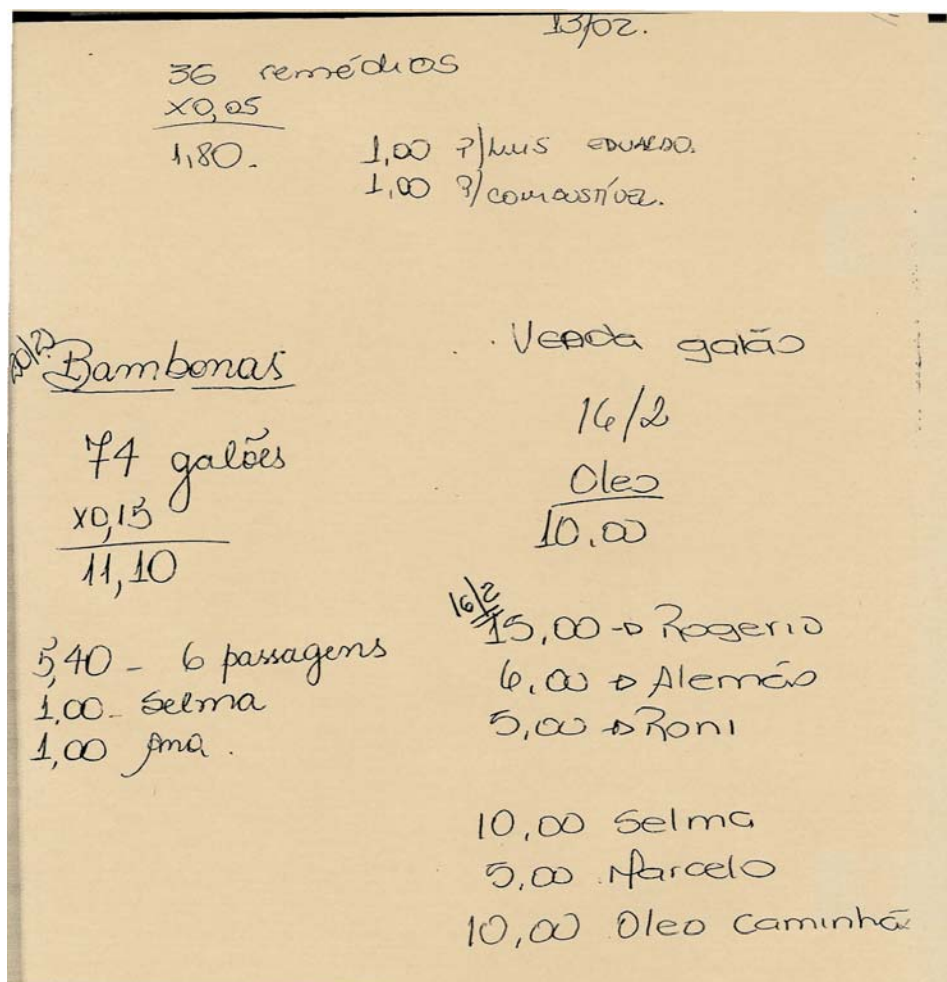 13/02.
36 remédios
x0,05
1,80.
1,00 P/ LUIS EDUALDO.
1,00 P/ COMBUSTÍVEL.
20/2)
Bambonas
74 galões
x0,15
11,10
5,40 - 6 passagens
1,00 - Selma
1,00 Ana.
Venda galão
16/2
Oleo
10,00
16/2
15,00 → Rogerio
6,00 → Alemão
5,00 → Roni
10,00 Selma
5,00 Marcelo
10,00 Oleo Caminhã